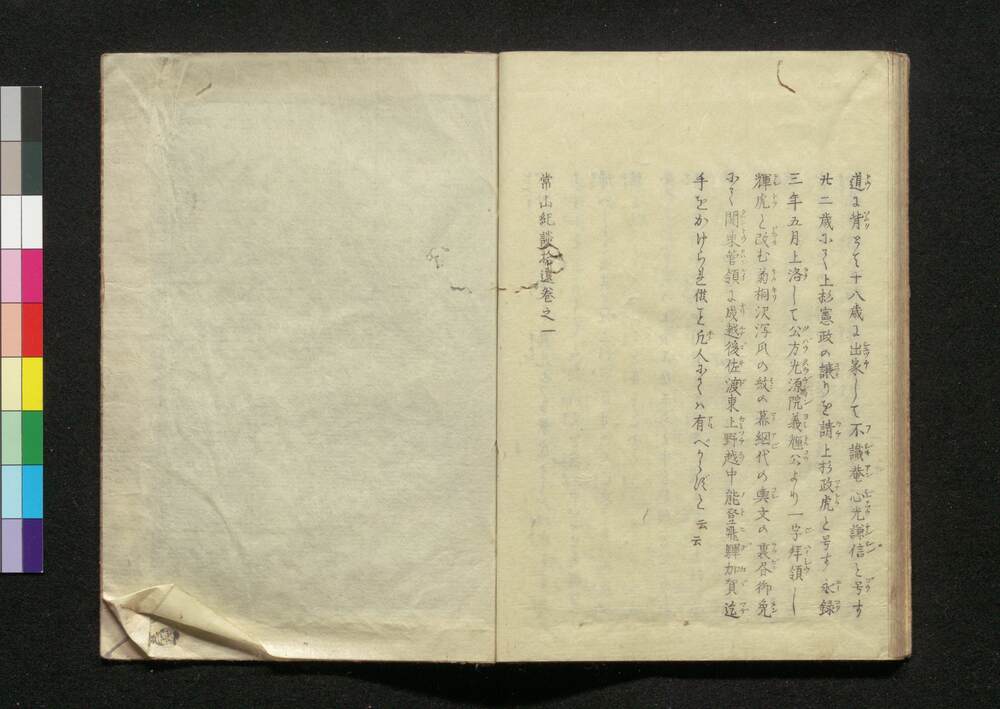 道に背らす十八歳に出家して不識菴心光謙信と号す
廿二歳にて上杉憲政の譲りを請上杉政虎と号す永録
三年五月上洛して公方光源院義輝公より一字拝領し
輝虎と改む菊桐沢瀉瓜の紋の幕網代の輿文の裏書御免
にて関東管領に成越後佐渡東上野越中能登飛騨加賀迄
手をかけらる凡人にてハ有へからすと云云
常山紀談拾遺巻之一